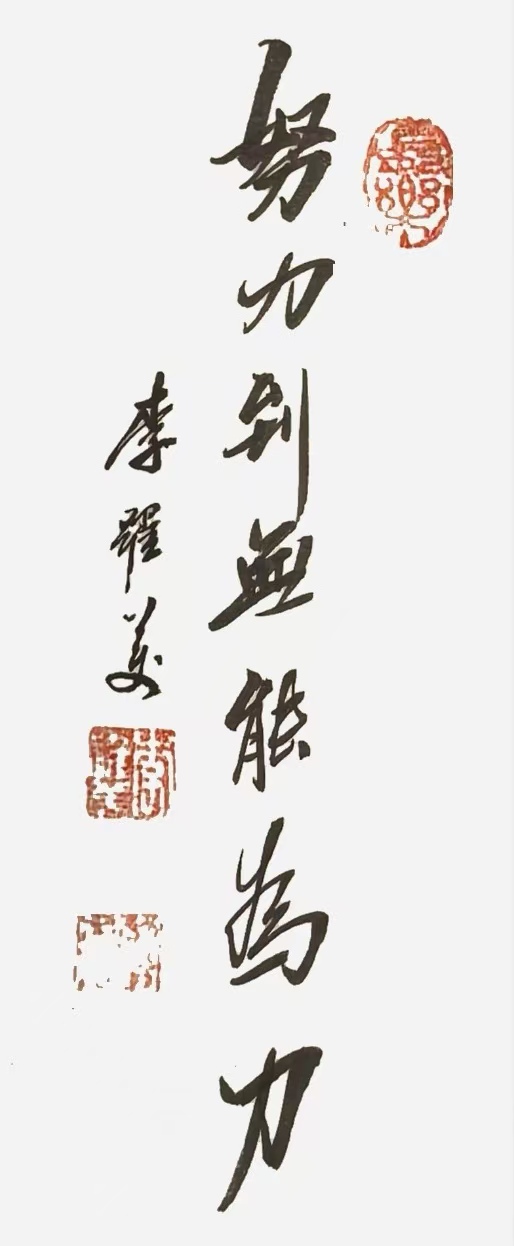 努力到無能為力
李躍美